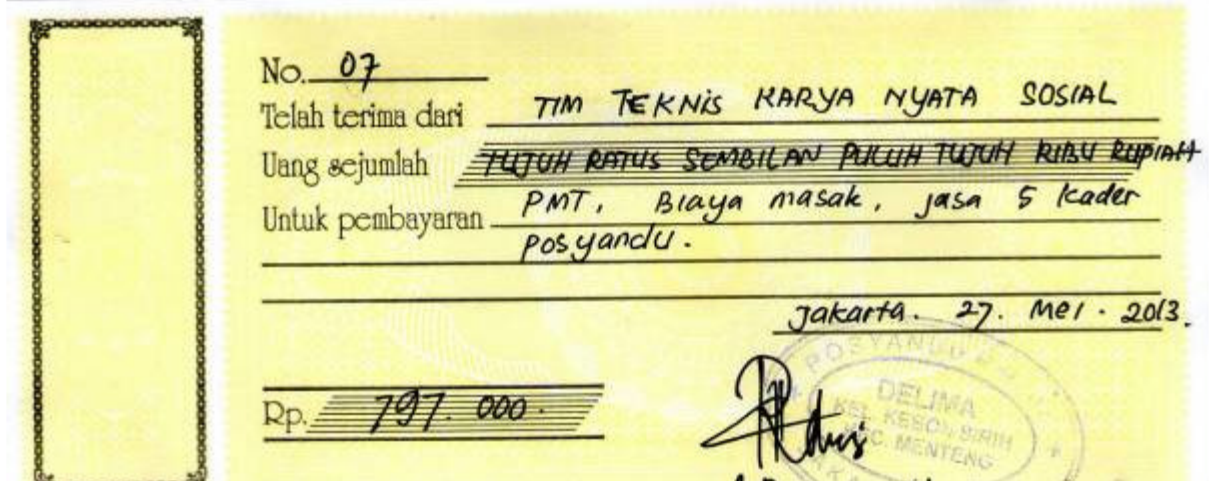 No. 07
Telah terima dari TIM TEKNIS KARYA NYATA SOSIAL
Uang sejumlah TUJUH RATUS SEMBILAN PULUH TUJUH RIBU RUPIAH
Untuk pembayaran PMT, Biaya masak, jasa 5 kader
posyandu.
Jakarta. 27. Mei. 2013.
Rp. 797.000.
POSYANDU
DELIMA
KEL. KEBON SIRIH
KEC. MENTENG